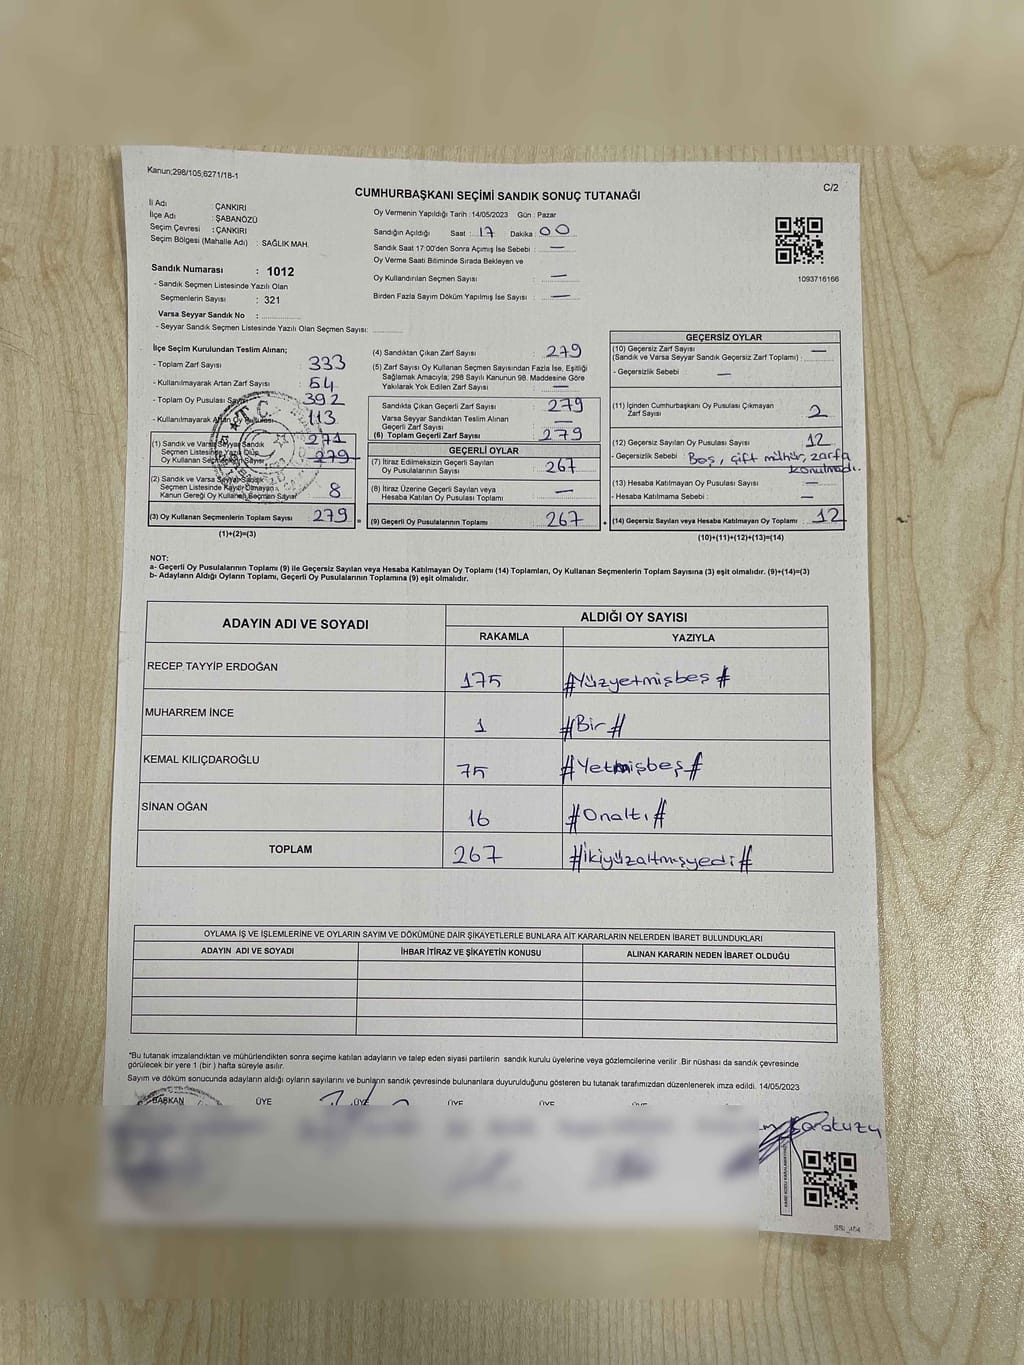 Kanun;298/105;6271/18-1
C/2
CUMHURBAŞKANI SEÇİMİ SANDIK SONUÇ TUTANAĞI
İl Adı : ÇANKIRI
İlçe Adı : ŞABANÖZÜ
Seçim Çevresi : ÇANKIRI
Seçim Bölgesi (Mahalle Adı) : SAĞLIK MAH.
Sandık Numarası : 1012
- Sandık Seçmen Listesinde Yazılı Olan
Seçmenlerin Sayısı : 321
Varsa Seyyar Sandık No :
- Seyyar Sandık Seçmen Listesinde Yazılı Olan Seçmen Sayısı:
Oy Vermenin Yapıldığı Tarih :14/05/2023 Gün : Pazar
Sandığın Açıldığı Saat : 17 Dakika : 00
Sandık Saat 17:00'den Sonra Açımış İse Sebebi : —
Oy Verme Saati Bitiminde Sırada Bekleyen ve
Oy Kullandırılan Seçmen Sayısı : —
Birden Fazla Sayım Döküm Yapılmış İse Sayısı : —
1093716166
İlçe Seçim Kurulundan Teslim Alınan;
- Toplam Zarf Sayısı : 333
- Kullanılmayarak Artan Zarf Sayısı : 54
- Toplam Oy Pusulası Sayısı : 392
- Kullanılmayarak Artan Oy Pusulası : 113
T.C.
(1) Sandık ve Varsa Seyyar Sandık 271
Seçmen Listesinde Yazılı Olup
Oy Kullanan Seçmenlerin Sayısı 279
(2) Sandık ve Varsa Seyyar Sandık
Seçmen Listesinde Kayıtlı Olmayan
Kanun Gereği Oy Kullanan Seçmen Sayısı 8
(3) Oy Kullanan Seçmenlerin Toplam Sayısı 279 =
(1)+(2)=(3)
(4) Sandıktan Çıkan Zarf Sayısı : 279
(5) Zarf Sayısı Oy Kullanan Seçmen Sayısından Fazla İse, Eşitliği
Sağlamak Amacıyla; 298 Sayılı Kanunun 98. Maddesine Göre
Yakılarak Yok Edilen Zarf Sayısı : —
Sandıkta Çıkan Geçerli Zarf Sayısı : 279
Varsa Seyyar Sandıktan Teslim Alınan
Geçerli Zarf Sayısı : —
(6) Toplam Geçerli Zarf Sayısı : 279
GEÇERLİ OYLAR
(7) İtiraz Edilmeksizin Geçerli Sayılan
Oy Pusulalarının Sayısı : 267
(8) İtiraz Üzerine Geçerli Sayılan veya
Hesaba Katılan Oy Pusulası Toplamı : —
(9) Geçerli Oy Pusulalarının Toplamı : 267 +
GEÇERSİZ OYLAR
(10) Geçersiz Zarf Sayısı
(Sandık ve Varsa Seyyar Sandık Geçersiz Zarf Toplamı) : —
- Geçersizlik Sebebi : —
(11) İçinden Cumhurbaşkanı Oy Pusulası Çıkmayan
Zarf Sayısı : 2
(12) Geçersiz Sayılan Oy Pusulası Sayısı : 12
- Geçersizlik Sebebi : Boş, çift mühür, zarfa
konulmadı.
(13) Hesaba Katılmayan Oy Pusulası Sayısı : —
- Hesaba Katılmama Sebebi : —
(14) Geçersiz Sayılan veya Hesaba Katılmayan Oy Toplamı : 12
(10)+(11)+(12)+(13)=(14)
NOT:
a- Geçerli Oy Pusulalarının Toplamı (9) ile Geçersiz Sayılan veya Hesaba Katılmayan Oy Toplamı (14) Toplamları, Oy Kullanan Seçmenlerin Toplam Sayısına (3) eşit olmalıdır. (9)+(14)=(3)
b- Adayların Aldığı Oyların Toplamı, Geçerli Oy Pusulalarının Toplamına (9) eşit olmalıdır.
ADAYIN ADI VE SOYADI
ALDIĞI OY SAYISI
RAKAMLA YAZIYLA
RECEP TAYYİP ERDOĞAN 175 #Yüzyetmişbeş#
MUHARREM İNCE 1 #Bir#
KEMAL KILIÇDAROĞLU 75 #Yetmişbeş#
SİNAN OĞAN 16 #Onaltı#
TOPLAM 267 #ikiyüzaltmışyedi#
OYLAMA İŞ VE İŞLEMLERİNE VE OYLARIN SAYIM VE DÖKÜMÜNE DAİR ŞİKAYETLERLE BUNLARA AİT KARARLARIN NELERDEN İBARET BULUNDUKLARI
ADAYIN ADI VE SOYADI İHBAR İTİRAZ VE ŞİKAYETİN KONUSU ALINAN KARARIN NEDEN İBARET OLDUĞU
*Bu tutanak imzalandıktan ve mühürlendikten sonra seçime katılan adayların ve talep eden siyasi partilerin sandık kurulu üyelerine veya gözlemcilerine verilir .Bir nüshası da sandık çevresinde
görülecek bir yere 1 (bir ) hafta süreyle asılır.
Sayım ve döküm sonucunda adayların aldığı oyların sayılarını ve bunların sandık çevresinde bulunanlara duyurulduğunu gösteren bu tutanak tarafımızdan düzenlenerek imza edildi. 14/05/2023
BAŞKAN ÜYE ÜYE ÜYE ÜYE ÜYE